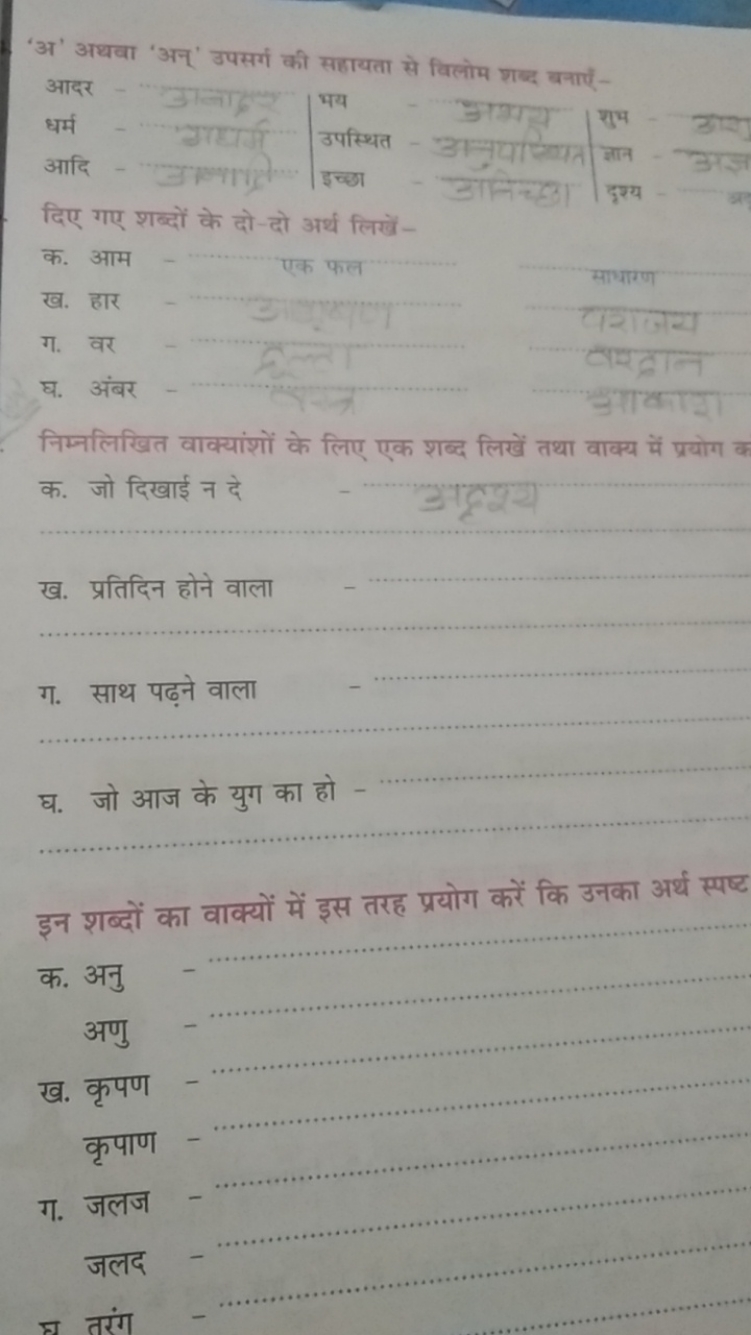 'अ' अथवा 'अन्' उपसर्ग की सहायता से विलोम शब्द बनाएँ–
आदर – अनादर भय – अभय शुभ –
धर्म – अधर्म उपस्थित – अनुपस्थित ज्ञान –
आदि – अनादि इच्छा – अनिच्छा दृश्य –
दिए गए शब्दों के दो-दो अर्थ लिखें–
क. आम – एक फल साधारण
ख. हार – पराजय
ग. वर – वरदान
घ. अंबर – वस्त्र आकाश
निम्नलिखित वाक्यांशों के लिए एक शब्द लिखें तथा वाक्य में प्रयोग
क. जो दिखाई न दे – अदृश्य
ख. प्रतिदिन होने वाला –
ग. साथ पढ़ने वाला –
घ. जो आज के युग का हो –
इन शब्दों का वाक्यों में इस तरह प्रयोग करें कि उनका अर्थ स्पष्ट
क. अनु –
अणु –
ख. कृपण –
कृपाण –
ग. जलज –
जलद –
घ तरंग –